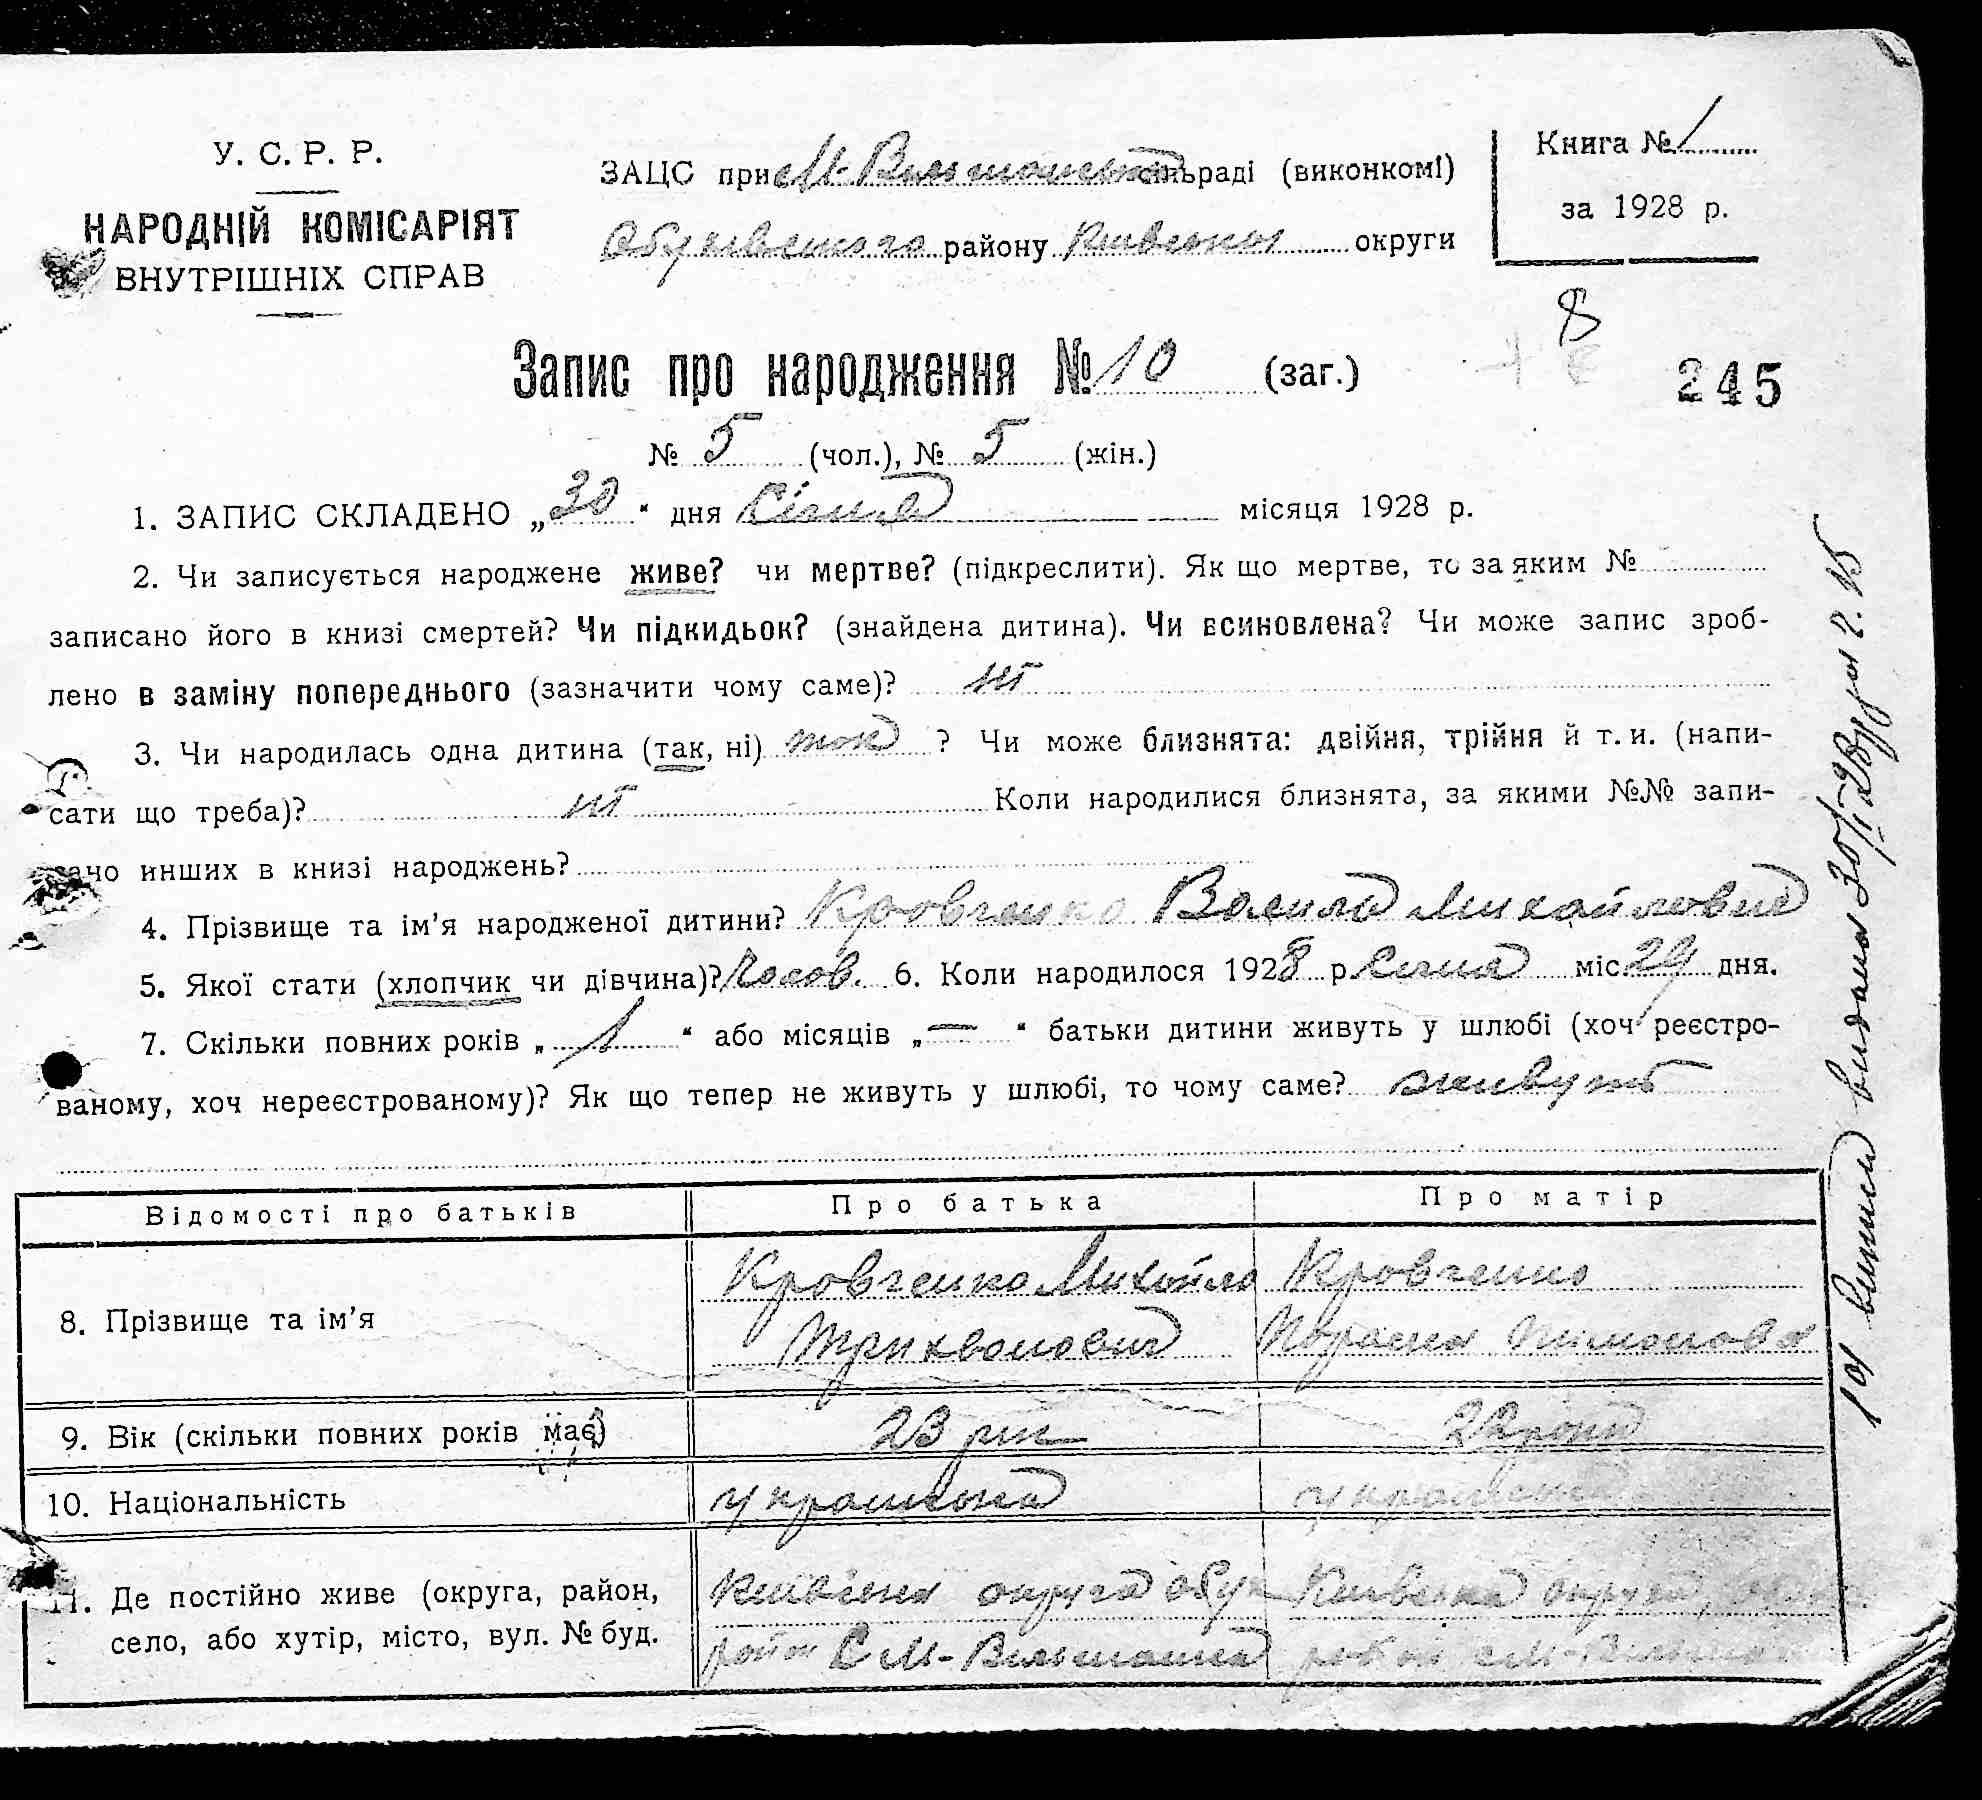 У. С. Р. Р.
НАРОДНІЙ КОМІСАРІЯТ
ВНУТРІШНІХ СПРАВ
ЗАЦС при М-Вільшанській сільраді (виконкомі)
Обухівського району Київської округи
Книга № 1
за 1928 р.
8
245
Запис про народження № 10 (заг.)
№ 5 (чол.), № 5 (жін.)
1. ЗАПИС СКЛАДЕНО „30" дня Січня місяця 1928 р.
2. Чи записується народжене живе? чи мертве? (підкреслити). Як що мертве, то за яким №
записано його в книзі смертей? Чи підкидьок? (знайдена дитина). Чи всиновлена? Чи може запис зроб-
лено в заміну попереднього (зазначити чому саме)? ні
3. Чи народилась одна дитина (так, ні) так ? Чи може близнята: двійня, трійня й т. и. (напи-
сати що треба)? ні Коли народилися близнята, за якими №№ запи-
сано инших в книзі народжень?
4. Прізвище та ім'я народженої дитини? Кровченко Василь Михайлович
5. Якої стати (хлопчик чи дівчина)? Чолов. 6. Коли народилося 1928 р. Січня міс. 29 дня.
7. Скільки повних років „ 1 " або місяців „ — " батьки дитини живуть у шлюбі (хоч реєстро-
ваному, хоч нереєстрованому)? Як що тепер не живуть у шлюбі, то чому саме? живуть
Відомості про батьків Про батька Про матір
8. Прізвище та ім'я Кровченко Михайло Кровченко
Трихвонович Параска
9. Вік (скільки повних років має) 23 рік 22 роки
10. Національність українська українська
11. Де постійно живе (округа, район, Київська округа Обух Київська округа,
село, або хутір, місто, вул. № буд. район С М-Вільшанка район с М-Вільшанка